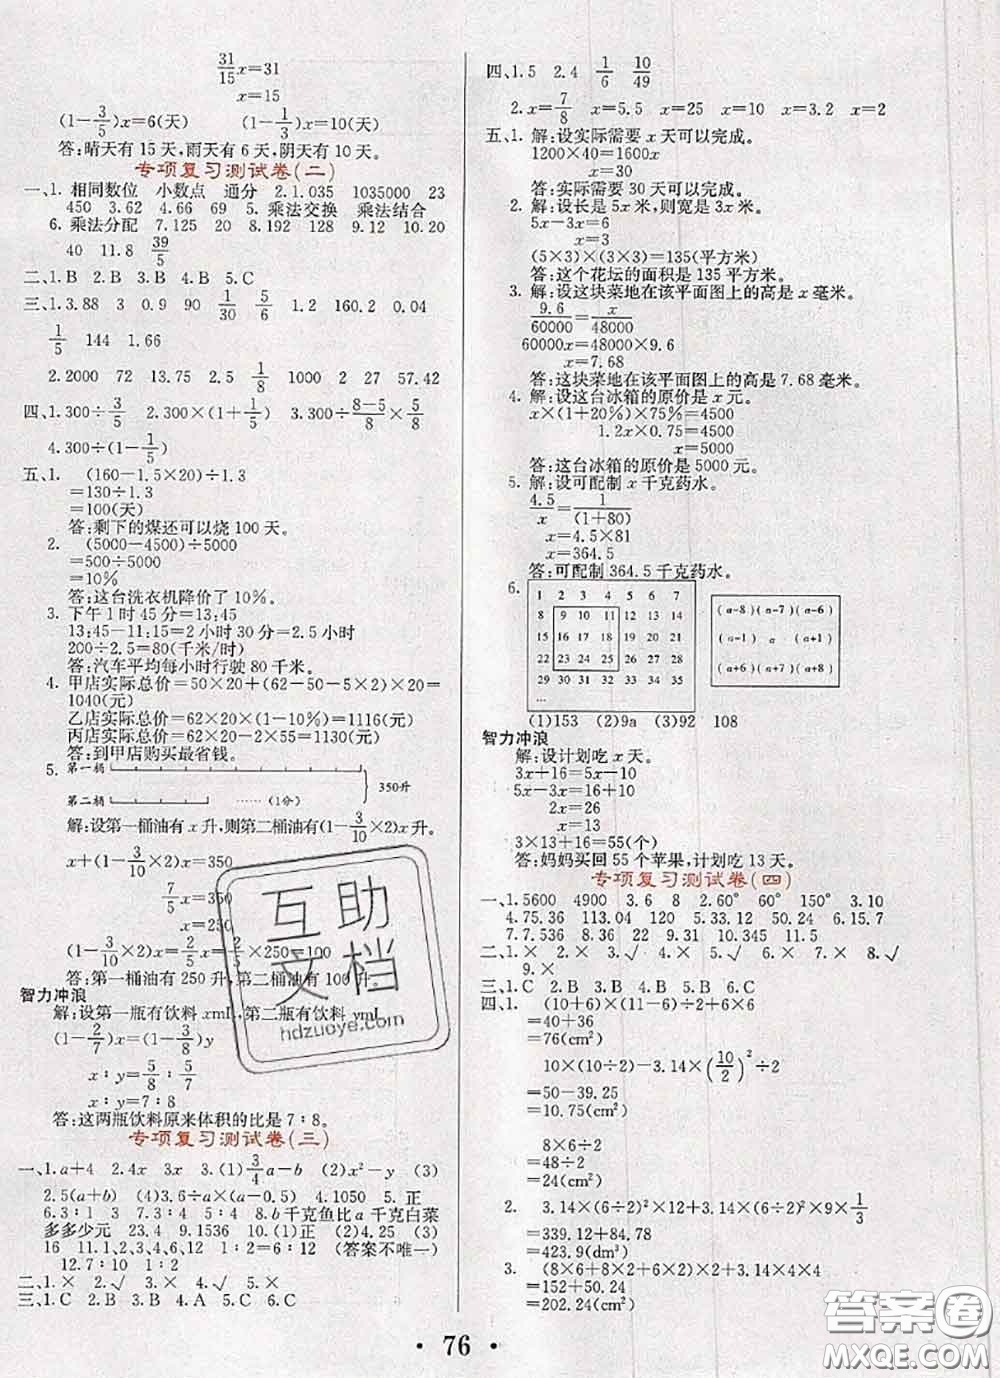 31/15 x=31
x=15
(1-3/5)x=6(天) (1-1/3)x=10(天)
答:晴天有 15 天,雨天有 6 天,阴天有 10 天。
专项复习测试卷(二)
一、1. 相同数位 小数点 通分 2.1.035 1035000 23
450 3.62 4.66 69 5. 乘法交换 乘法结合
6. 乘法分配 7.125 20 8.192 128 9.12 10.20
40 11.8 39/5
二、1.B 2.B 3.B 4.B 5.C
三、1.3.88 3 0.9 90 1/30 5/6 1.2 160.2 0.04
1/5 144 1.66
2.2000 72 13.75 2.5 1/8 1000 2 27 57.42
四、1.300÷3/5 2.300×(1+1/5) 3.300÷(8-5)/5×5/8
4.300÷(1-1/5)
五、1. (160-1.5×20)÷1.3
=130÷1.3
=100(天)
答:剩下的煤还可以烧 100 天。
2. (5000-4500)÷5000
=500÷5000
=10%
答:这台洗衣机降价了 10%。
3. 下午 1 时 45 分=13:45
13:45-11:15=2 小时 30 分=2.5 小时
200÷2.5=80(千米/时)
答:汽车平均每小时行驶 80 千米。
4. 甲店实际总价=50×20+(62-50-5×2)×20=
1040(元)
乙店实际总价=62×20×(1-10%)=1116(元)
丙店实际总价=62×20-2×55=1130(元)
答:到甲店购买最省钱。
5. 第一桶
350升
第二桶 ……(1份)
解:设第一桶油有 x 升,则第二桶油有(1-3/10×2)x 升。
x+(1-3/10×2)x=350
7/5 x=350
x=250
(1-3/10×2)x=2/5 x=2/5×250=100
答:第一桶油有 250 升,第二桶油有 100 升。
智力冲浪
解:设第一瓶有饮料 xmL,第二瓶有饮料 ymL。
(1-2/7)x=(1-3/8)y
x∶y=5/8∶5/7
x∶y=7∶8
答:这两瓶饮料原来体积的比是 7∶8。
专项复习测试卷(三)
一、1.a+4 2.4x 3x 3.(1)3/4a-b (2)x²-y (3)
2.5(a+b) (4)3.6÷a×(b-a) 4.1050 5. 正
6.3∶1 3 7.3∶5 4∶5 8.b 千克鱼比 a 千克白菜
多多少元 23.4 9.1536 10.(1)正 (2)4.25 (3)
16 11.1,2,3,4,6,12 1∶2=6∶12 (答案不唯一)
12.7∶10 1∶2
二、1.× 2.√ 3.× 4.√ 5.×
三、1.C 2.B 3.B 4.A 5.C 6.C
四、1.5 2.4 1/6 10/49
2.x=7/8 x=5.5 x=25 x=10 x=3.2 x=2
五、1. 解:设实际需要 x 天可以完成。
1200×40=1600x
x=30
答:实际需要 30 天可以完成。
2. 解:设长是 5x 米,则宽是 3x 米。
5x-3x=6
x=3
(5×3)×(3×3)=135(平方米)
答:这个花坛的面积是 135 平方米。
3. 解:设这块菜地在该平面图上的高是 x 毫米。
9.6/60000=x/48000
60000x=48000×9.6
x=7.68
答:这块菜地在该平面图上的高是 7.68 毫米。
4. 解:设这台冰箱的原价是 x 元。
x×(1+20%)×75%=4500
1.2x×0.75=4500
x=5000
答:这台冰箱的原价是 5000 元。
5. 解:设可配制 x 千克药水。
4.5/x=1/(1+80)
x=4.5×81
x=364.5
答:可配制 364.5 千克药水。
6.
1 2 3 4 5 6 7
8 9 10 11 12 13 14
15 16 17 18 19 20 21
22 23 24 25 26 27 28
29 30 31 32 33 34 35
…
(a-8) (a-7) (a-6)
(a-1) a (a+1)
(a+6) (a+7) (a+8)
(1)153 (2)9a (3)92 108
智力冲浪
解:设计划吃 x 天。
3x+16=5x-10
5x-3x=16+10
2x=26
x=13
3×13+16=55(个)
答:妈妈买回 55 个苹果,计划吃 13 天。
专项复习测试卷(四)
一、1.5600 4900 3.6 8 2.60° 60° 150° 3.10
4.75.36 113.04 120 5.33.12 50.24 6.15.7
7.7.536 8.36 22 9.90 10.345 11.5
二、1.× 2.× 3.× 4.× 5.× 6.× 7.× 8.√
9.×
三、1.C 2.B 3.C 4.C 5.B 6.C
四、1. (10+6)×(11-6)÷2+6×6
=40+36
=76(cm²)
10×(10÷2)-3.14×(10/2)²÷2
=50-39.25
=10.75(cm²)
8×6÷2
=48÷2
=24(cm²)
2. 3.14×(6÷2)²×12+3.14×(6÷2)²×9×1/3
=339.12+84.78
=423.9(dm³)
3. (8×6+8×2+6×2)×2+3.14×2×8
=152+50.24
=202.24(cm²)
• 76 •
互助文档
hdzuoye.com
答案圈
MXQE.COM